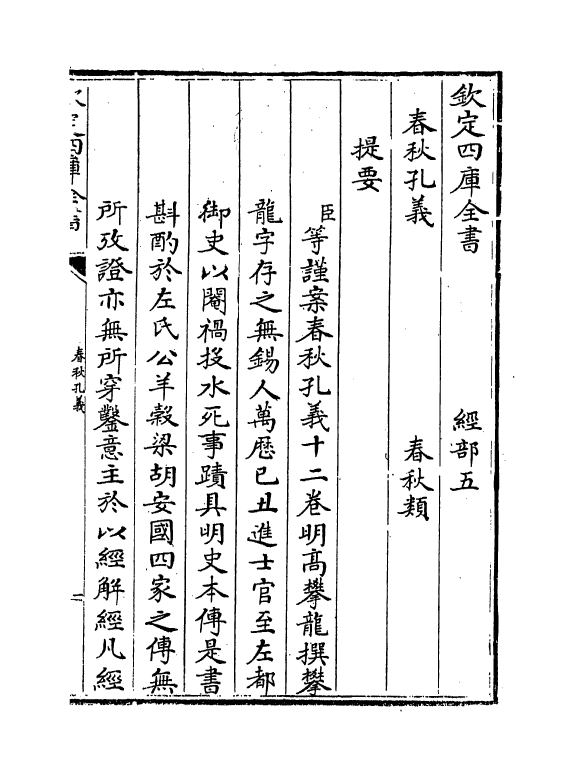 欽定四庫全書　經部五
春秋孔義　春秋類
提要
臣等謹案春秋孔義十二卷明髙攀龍撰攀
龍字存之無錫人萬歴已丑進士官至左都
御史以閹禍投水死事蹟具明史本傳是書
斟酌於左氏公羊榖梁胡安國四家之傳無
所攷證亦無所穿鑿意主於以經解經凡經
欽定四庫全書
春秋孔義
一